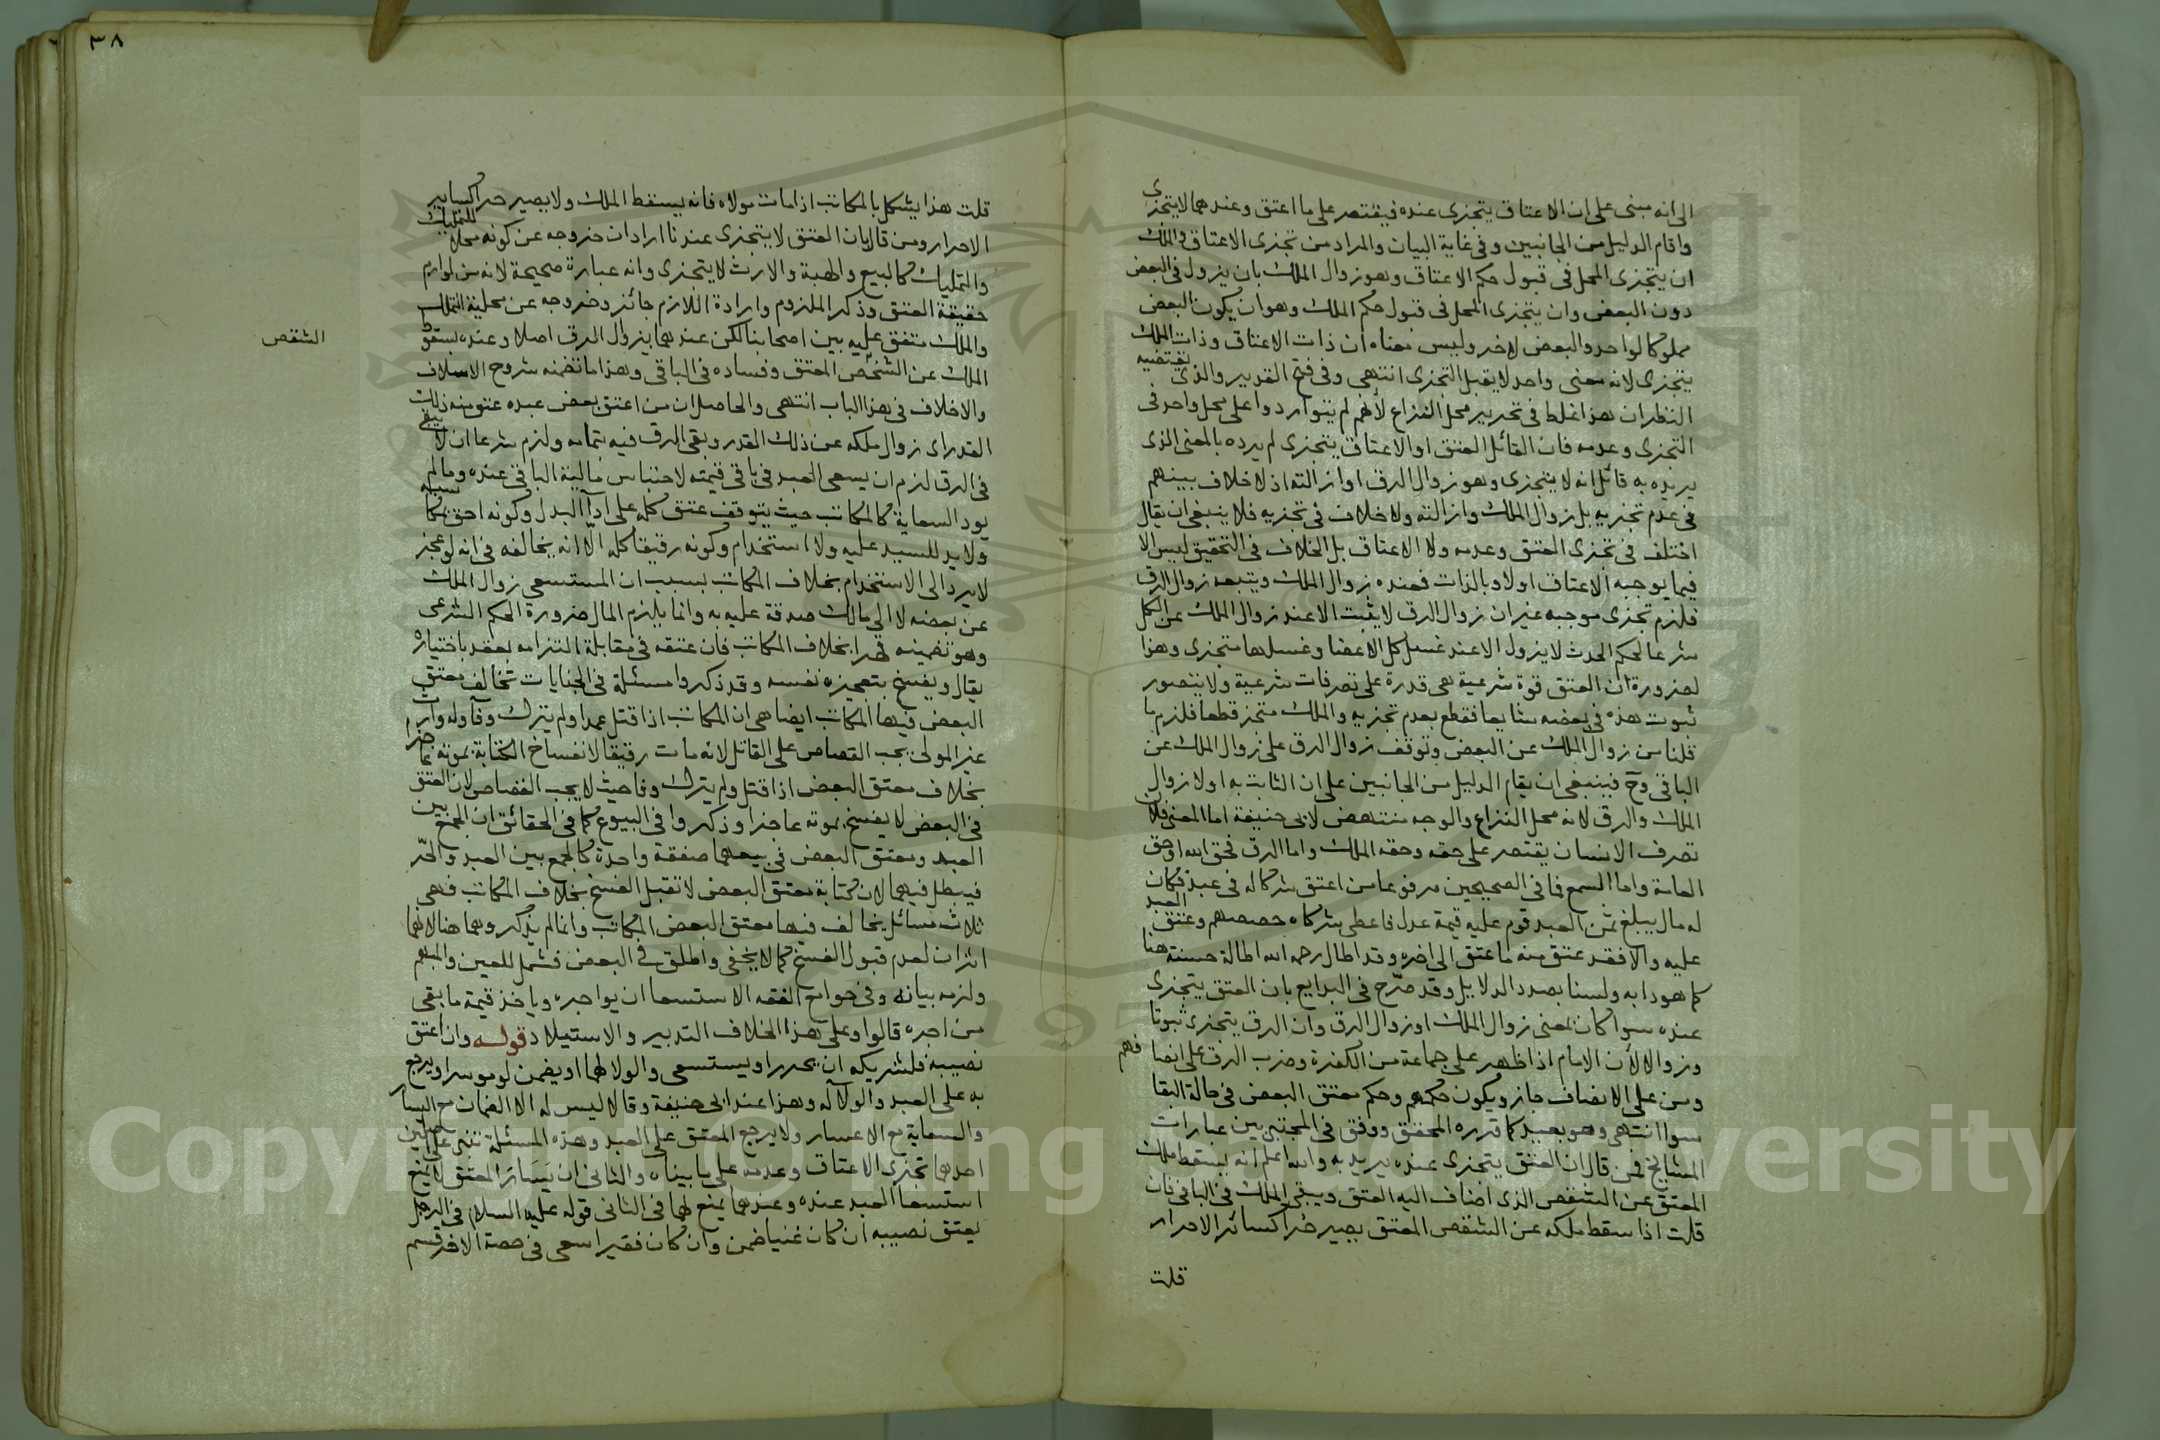 الى انه مبنى على ان الاعتاق يتجزى عنده فيقتصر على ما اعتق وعندهما لا يتجزى
واقام الدليل من الجانبين وفى غاية البيان والمراد من تجزى الاعتاق والملك
ان يتجزى المحل فى قبول حكم الاعتاق وهو زوال الملك بان يزول فى البعض
دون البعض وان يتجزى المحل فى قبول حكم الملك وهو ان يكون البعض
مملوكا لواحد والبعض لاخر وليس معناه ان ذات الاعتاق وذات الملك
يتجزى لانه معنى واحد لا يقبل التجزى انتهى وفى فتح القدير والذى يقتضيه
النظر ان هذا غلط فى تحرير محل النزاع لأنهم لم يتواردوا على محل واحد فى
التجزى وعدمه فان القائل العتق او الاعتاق يتجزى لم يرده بالمعنى الذى
يريده به قائل انه لا يتجزى وهو زوال الرق او ازالته اذ لا خلاف بينهم
فى عدم تجزيه بل زوال الملك وازالته ولا خلاف فى تجزيه فلا ينبغى ان يقال
اختلف فى تجزى العتق وعدمه ولا الاعتاق بل الخلاف فى التحقيق ليس الا
فيما يوجبه الاعتاق اولا وبالذات فعنده زوال الملك ويتبعه زوال الرق
فلزم تجزى موجبه غير ان زوال الرق لا يثبت الا عند زوال الملك عن الكل
شرعا لحكم الحدث لا يزول الا عند غسل كل الاعضا وغسلها متجزى وهذا
لضرورة ان العتق قوة شرعية هى قدرة على تصرفات شرعية ولا يتصور
ثبوت هذه فى بعضه شايعا فقطع بعدم تجزيه والملك متجز قطعا فلزم ما
قلنا من زوال الملك عن البعض وتوقف زوال الرق على زوال الملك عن
الباقى وح فينبغى ان يقام الدليل من الجانبين على ان الثابت به اولا زوال
الملك والرق لانه محل النزاع والوجه منتهض لابى حنيفة اما المعنى فلان
تصرف الانسان يقتصر على حقه وحقه الملك واما الرق فحق الله او حق
العامة واما السمع فما فى الصحيحين مرفوعا من اعتق شركا له فى عبد فكان
له مال يبلغ ثمن العبد قوم عليه قيمة عدل فاعطى شركاه حصصهم وعتق العبد
عليه والا فقد عتق منه ما عتق الى اخره وقد اطال رحمه الله اطالة حسنة هنا
كما هو دابه ولسنا بصدد الدلايل وقد صرّح فى البدايع بان العتق يتجزى
عنده سوا كان بمعنى زوال الملك او زوال الرق وان الرق يتجزى ثبوتا
وزوالا لأن الامام اذا ظهر على جماعة من الكفرة وضرب الرق على انصافهم
ومن على الانصاف جاز ويكون حكمهم وحكم معتق البعض فى حالة البقا
سوا انتهى وهو بعيد كما قرره المحقق ووفق فى المجتبى بين عبارات
المشايخ فمن قال ان العتق يتجزى عنده يريد به والله اعلم انه يسقط ملك
المعتق عن الشقص الذى اضاف اليه العتق ويبقى الملك فى الباقى فان
قلت اذا سقط ملكه عن الشقص المعتق يصير حرا كسائر الاحرار
قلت
٣٨
قلت هذا يشكل بالمكاتب اذا مات مولاه فانه يسقط الملك ولا يصير حرا كساير
الاحرار ومن قال بان العتق لا يتجزى عندنا اراد ان خروجه عن كونه محلا للتمليك
والتمليات كالبيع والهبة والارث لا يتجزى وانه عبارة صحيحة لانه من لوازم
حقيقة العتق وذكر الملزوم وارادة اللازم جائز وخروجه عن محلية التملك
والملك متفق عليه بين اصحابنا لكن عندهما يزول الرق اصلا وعنده بسقوط
الملك عن الشخص المعتق وفساده فى الباقى وهذا ما تضمنه شروح الاسلاف
الشقص
والاخلاف فى هذا الباب انتهى والحاصل ان من اعتق بعض عبده عتق منه ذلك
القدر اى زوال ملكه عن ذلك القدر وبقى الرق فيه بتمامه ولزم شرعا ان لا يبقى
فى الرق لزم ان يسعى العبد فى باقى قيمته لاحتباس مالية الباقى عنده وما لم
يود السعاية كالمكاتب حيث يتوقف عتق كله على اداّ البدل وكونه احق بمكاسبه
ولا يد للسيد عليه ولا استخدام وكونه رقيقا كله الا انه يخالفه فى انه لو عجز
لا يرد الى الاستخدام بخلاف المكاتب بسبب ان المستسعى زوال الملك
عن بعضه لا الى مالك صدقة عليه به وانما يلزم المال ضرورة الحكم الشرعى
وهو تضمينه قهرا بخلاف المكاتب فان عتقه فى مقابلة التزامه بعقد باختياره
يقال ويفسخ بتعجيزه نفسه وقد ذكروا مسئلة فى الجنايات تخالف معتق
البعض فيها المكاتب ايضا هى ان المكاتب اذا قتل عمدا ولم يترك وفا وله وارث
غير المولى يجب القصاص على القاتل لانه مات رقيقا لانفساخ الكتابة بموته عاجزا
بخلاف معتق البعض اذا قتل ولم يترك وفا حيث لا يجب القصاص لان العتق
فى البعض لا يفسخ بموته عاجزا وذكروا فى البيوع كما فى الحقائق ان الجمع بين
العبد ومعتق البعض فى بيعهما صفقة واحدة كالجمع بين العبد والحّر
فيبطل فيهما لان كتابة معتق البعض لا تقبل الفسخ بخلاف المكاتب فهى
ثلاث مسائل يخالف فيها معتق البعض المكاتب وانما لم يذكروهما هنا لانهما
اثران لعدم قبول الفسخ كما لا يخفى واطلق فى البعض فشمل المعين والمبهم
ولزمه بيانه وفى جوامع الفقه الاستسعا ان يواجره وياخذ قيمة ما بقى
من اجره قالوا وعلى هذا الخلاف التدبير والاستيلاد قوله وان اعتق
نصيبه فلشريكه ان يحرر او يستسعى والولا لهما او يضمن لو موسرا ويرجع
به على العبد والولاّ له وهذا عند ابى حنيفة وقالا ليس له الا الضمان مع اليسار
والسعاية مع الاعسار ولا يرجع المعتق على العبد وهذه المسئلة تبنى على اصلين
احدهما تجزى الاعتاق وعدمه على ما بيناه والثانى ان يسار المعتق لا يمنع
استسعا العبد عنده وعندهما يمنع لهما فى الثانى قوله عليه السلام فى الرجل
يعتق نصيبه ان كان غنيا ضمن وان كان فقيرا سعى فى حصة الاخر قسم